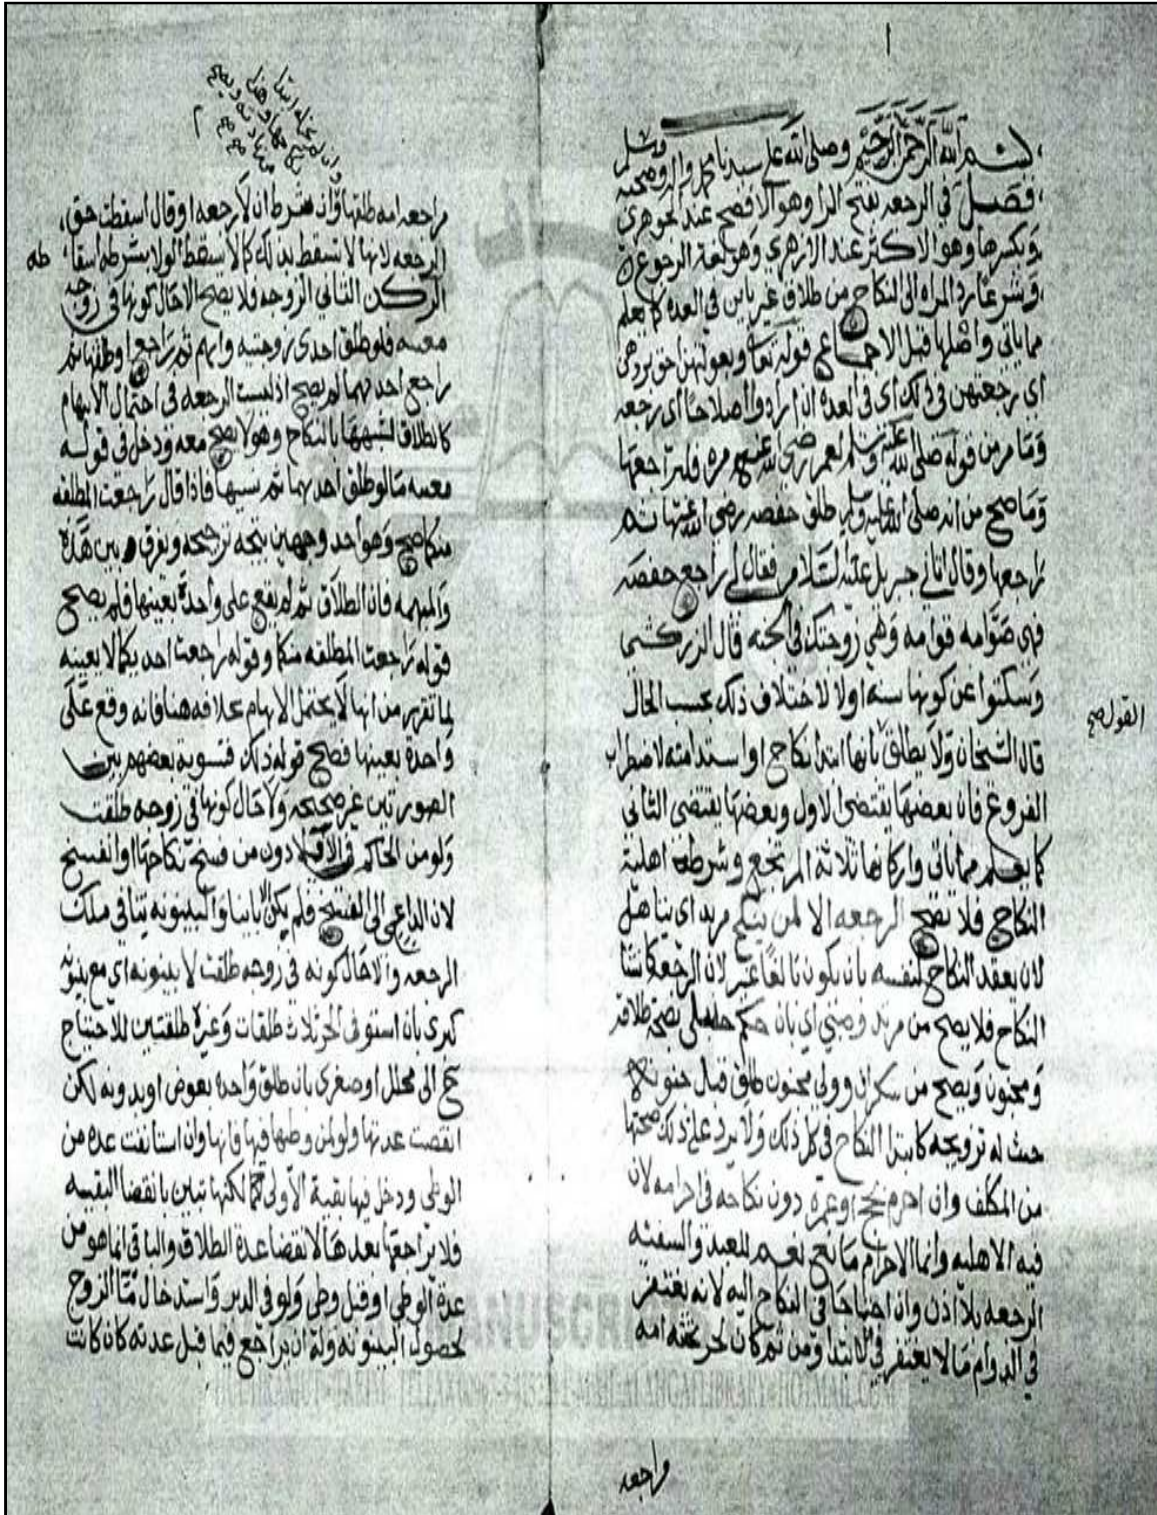 ١
بسم الله الرحمن الرحيم وصلى الله على سيدنا محمد واله وصحبه وسلم
فصل في الرجعه بفتح الرا وهو الافصح عند الجوهري
وبكسرها وهو الاكثر عند الازهري وهو لغة الرجوع
وشرعا رد المراه الى النكاح من طلاق غير باين في العده كما يعلم
مما ياتي واصلها قبل الاجماع قوله تعا وبعولتهن احق بردهن
اي رجعتهن في ذلك اي في العده ان ارادوا اصلاحا اي رجعه
وما مر من قوله صلى الله عليه وسلم لعمر رضي الله عنه مره فليراجعها
وما صح من انه صلى الله عليه وسلم طلق حفصه رضي الله عنها ثم
راجعها وقال اتاني جبريل عليه السلام فقال لي راجع حفصه
فهي صوامه قوامه وهي زوجتك في الجنه قال الزركشي
وسكتوا عن كونها سنه او لا لاختلاف ذلك بحسب الحال
قال الشيخان ولا يطلق بانها ابتدا نكاح او استدامته لاضطراب
القول صح
الفروع فان بعضها يقتضي الاول وبعضها يقتضي الثاني
كما يعلم مما ياتي واركانها ثلاثة المرتجع وشرطه اهلية
النكاح فلا تصح الرجعه الا لمن ينكح مريد اي يتاهل
لان يعقد النكاح لنفسه بان يكون بالغا لان الرجعه كانشا
النكاح فلا يصح من مرتد وصبي اي بان حكم حنبلي بصحة طلاقه
ومجنون ويصح من سكران وولي مجنون طلق قبل جنونه
حيث له تزويجه كابتدا النكاح في كل ذلك ولا يرد على ذلك صحتها
من المكلف وان احرم بحج او عمرة دون نكاحه في احرامه لان
فيه الاهليه وانما الاحرام مانع نعم للعبد والسفيه
الرجعه بلا اذن وان احتاجا في النكاح اليه لانه يغتفر
في الدوام ما لا يغتفر في الابتدا ومن ثم كان لحر تحته امه
مراجعه
مراجعه امه طلقها وان شرط ان لا رجعه او قال اسقطت حق
الرجعه لانها لا تسقط بذلك كما لا يسقط الولا بشرط اسقا طه
الركن الثاني الزوجه فلا يصح الا حال كونها في زوجه
معينه فلو طلق احدى زوجتيه وابهم ثم راجع او طلقهما ثم
راجع احديهما لم يصح اذ ليست الرجعه في احتمال الابهام
كالطلاق لشبهها بالنكاح وهو لا يصح معه ودخل في قوله
معينه ما لو طلق احديهما ثم نسيها فاذا قال راجعت المطلقه
منكما صح وهو احد وجهين يتجه ترجيحه ويفرق بين هذه
والمبهمه فان الطلاق ثم لم يقع على واحدة بعينها فلم يصح
قوله راجعت المطلقه منكما وقوله راجعت احديكما لا بعينه
لما تقرر من انها لا تحتمل الابهام بخلافه هنا فانه وقع على
واحده بعينها فصح قوله ذلك فتسوية بعضهم بين
الصورتين غير صحيحه ولا حال كونها في زوجه طلقت
ولو من الحاكم دون من فسخ نكاحها او انفسخ
لان الداعي الى الفسخ فلم يكن باينا والبينونه تنافي ملك
الرجعه والا حال كونه في زوجه طلقت لا بينونه اي مع بينونه
كبرى بان استوفى الحر ثلاث طلقات وغيره طلقتين للاحتياج
ح الى محلل او صغرى بان طلق واحده بعوض او بدونه لكن
انقضت عدتها ولو لمن وطيها فيها فانها وان استانفت عده من
الوطي ودخل فيها بقية الاولى لكنها تبين بانقضا البقيه
فلا يراجعها بعدها لانقضا عدة الطلاق والباقي انما هو من
عدة الوطي او قبل وطي ولو في الدبر واستدخال منا الزوج
لحصول البينونه وله ان يراجع فيما قبل عدته كان كانت